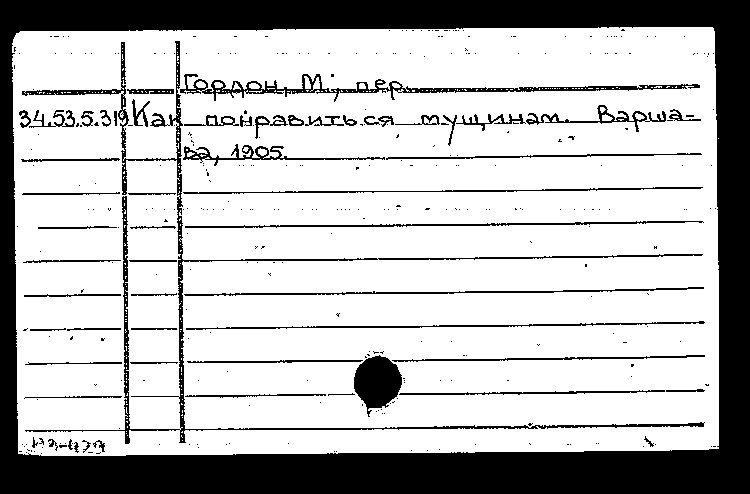 Гордон, М., пер.
34.53.5.319 Как понравиться мущинам. Варша-
ва, 1905.